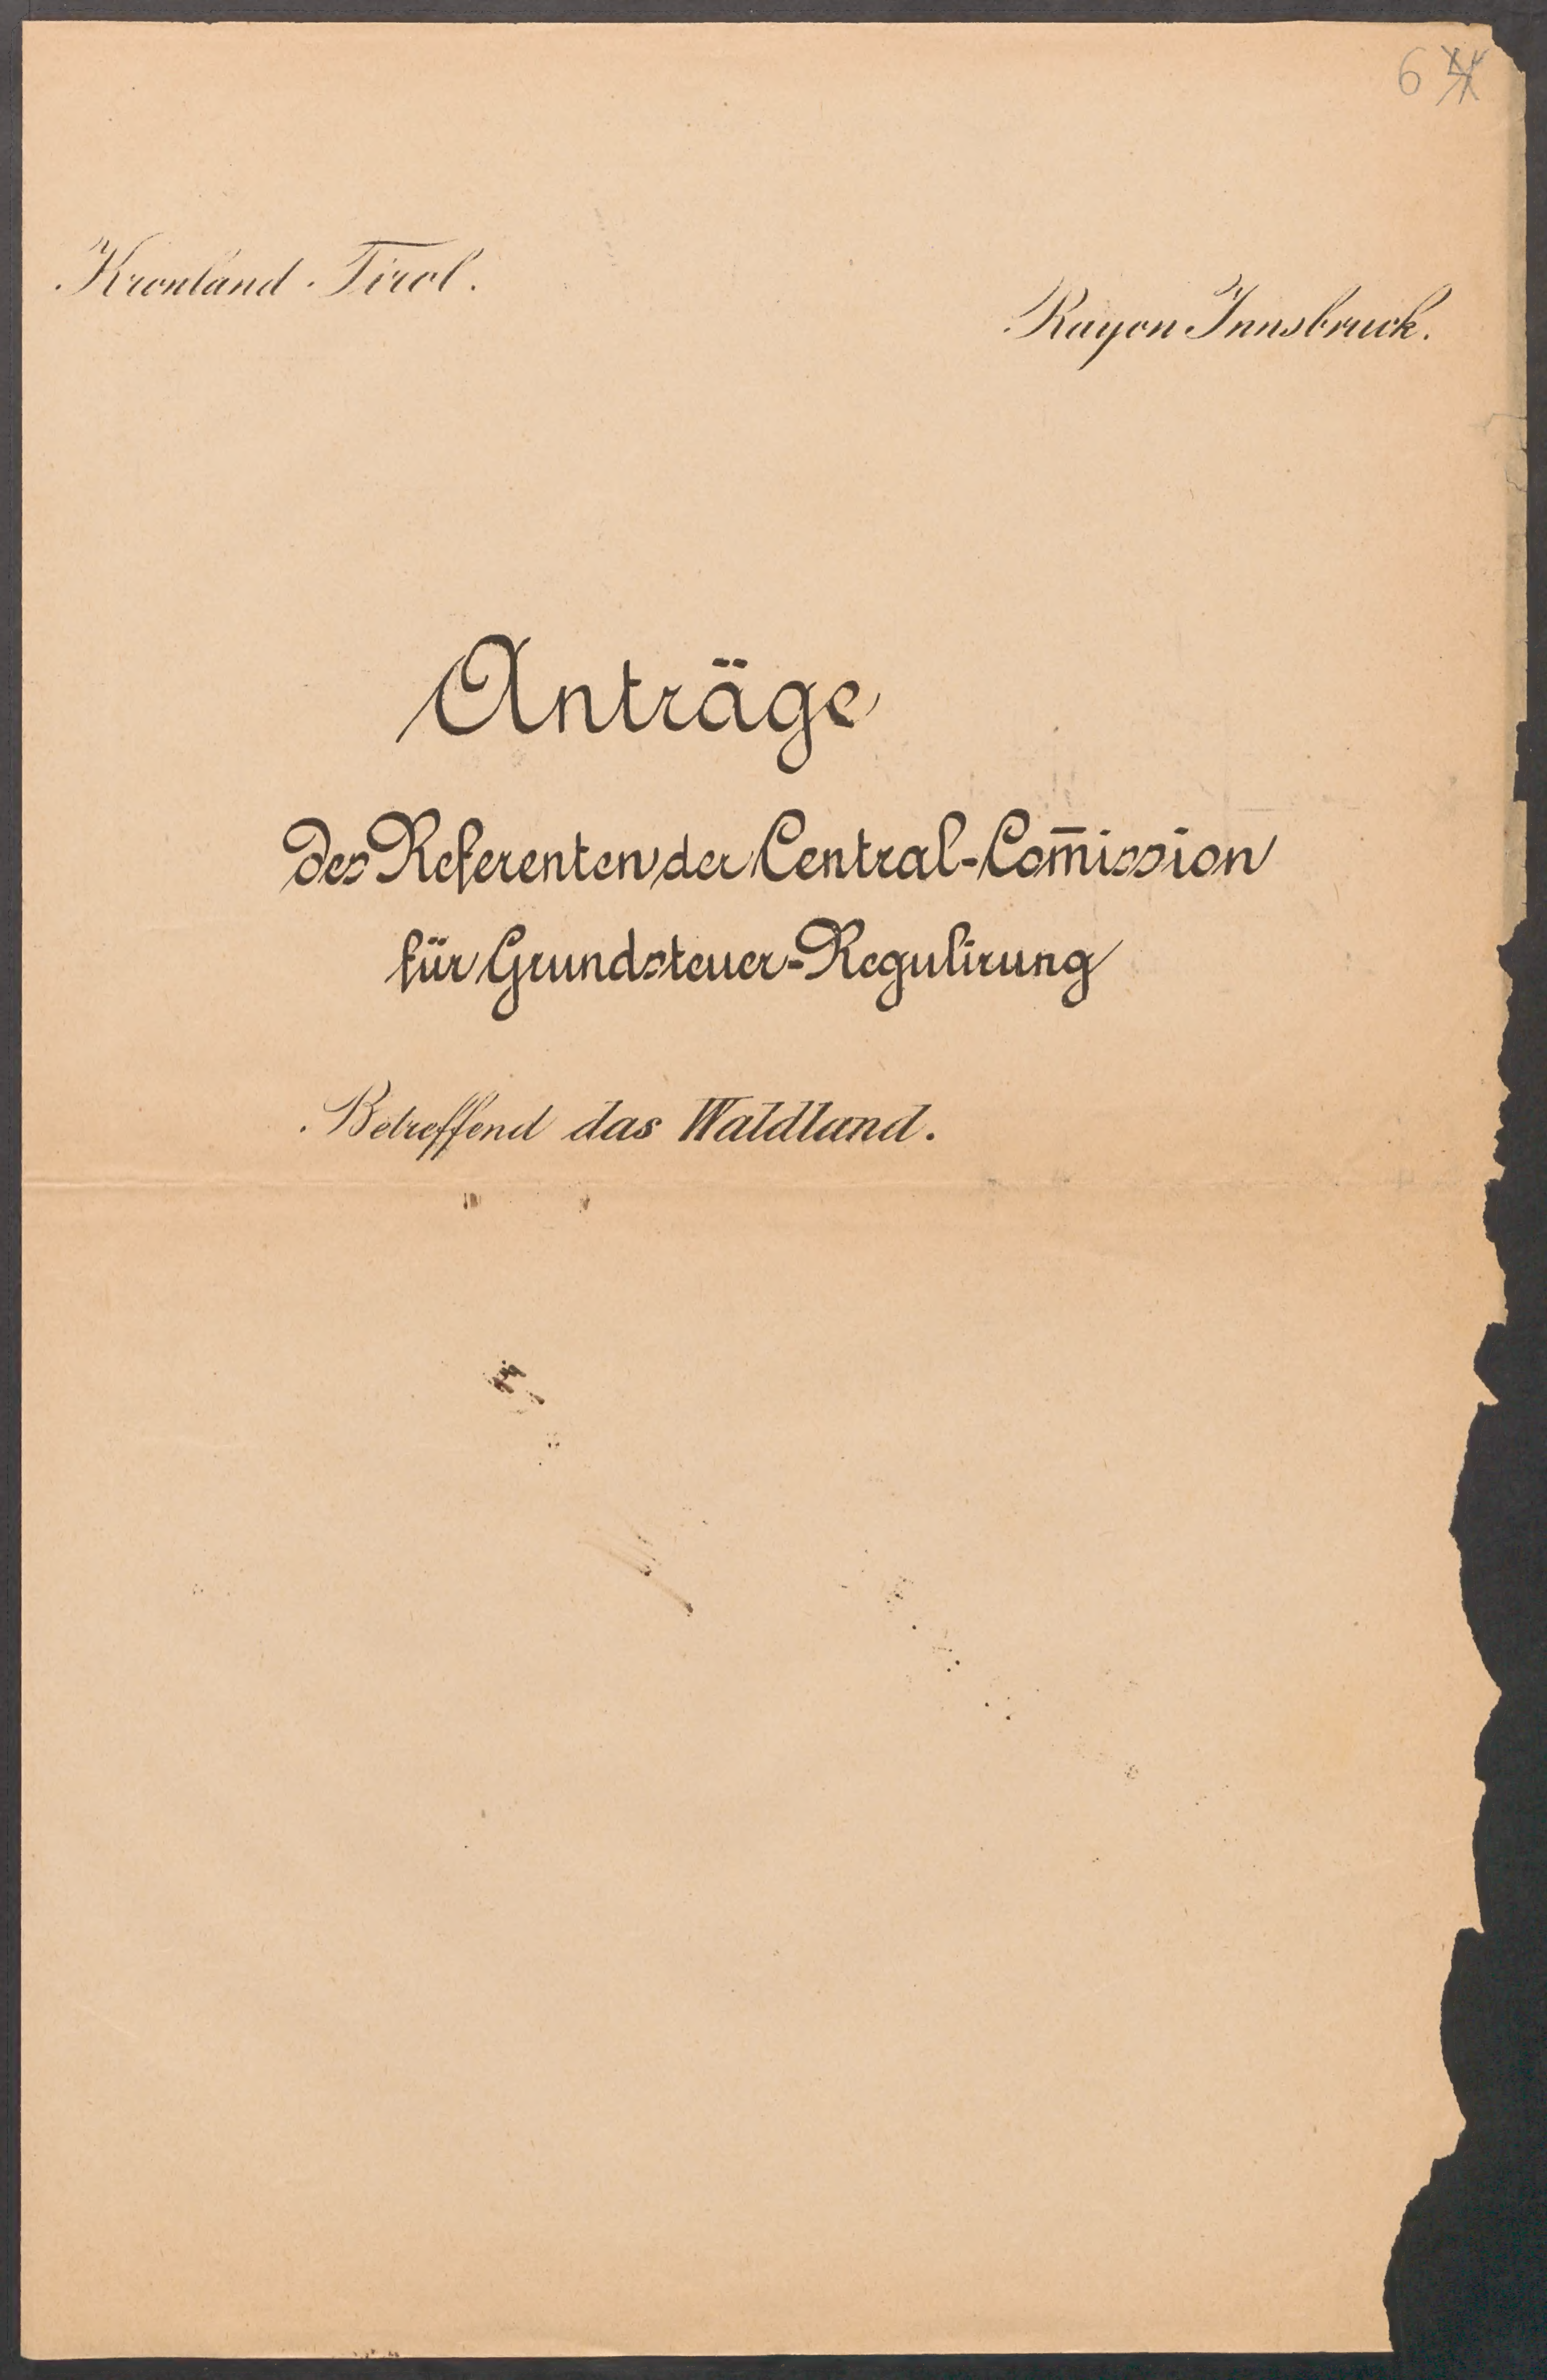 6
Kronland Tirol.
Rayon Innsbruck.
Anträge
des Referenten der Central-Com̅ission
für Grundsteuer-Regulirung
Betreffend das Waldland.